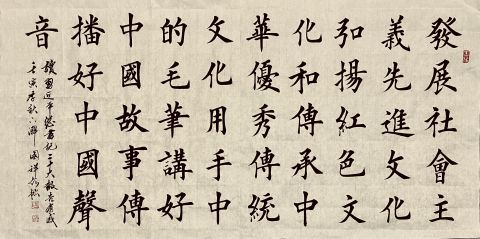 發展社會主
義先進文化
弘揚紅色文
化和傳承中
華優秀傳統
文化用手中
的毛筆講好
中國故事傳
播好中國聲
音
讀習近平總書記二十大報告有感
壬寅季秋國祥